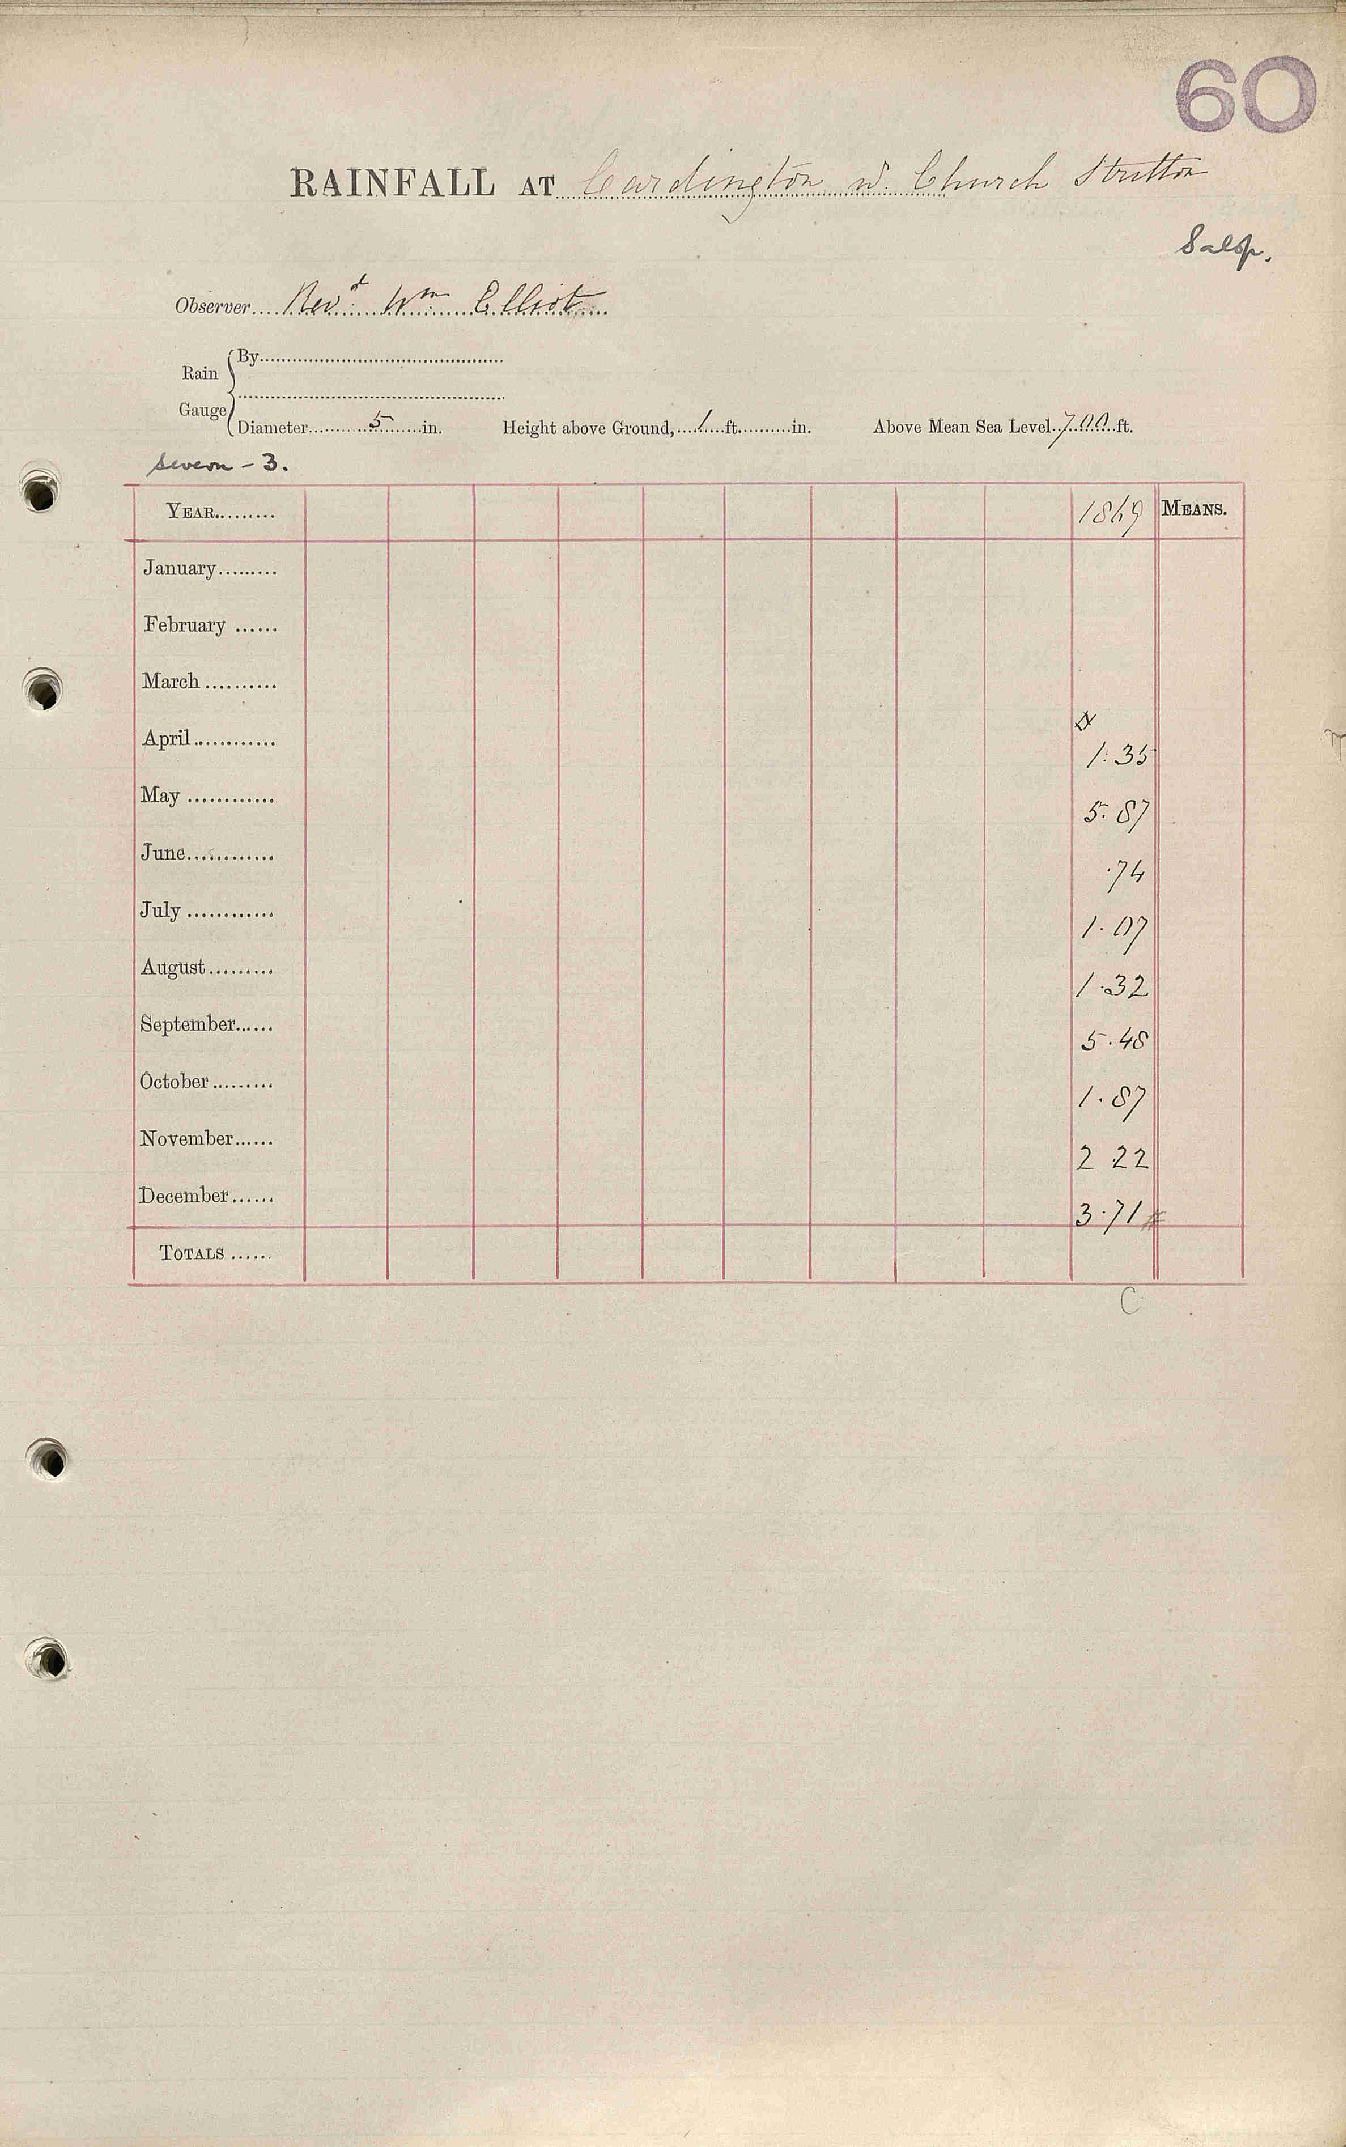 60
RAINFALL AT Cardington nr. Church Stretton
Salop.
Observer.... Revd. Wm Elliot
Rain Gauge
By
Diameter 5 in. Height above Ground, 1 ft. in. Above Mean Sea Level 700 ft.
Severn - 3.
YEAR 1869 MEANS.
January
February
March
April 1.35
May 5.87
June .74
July 1.07
August 1.32
September 5.48
October 1.87
November 2 22
December 3.71
TOTALS
C